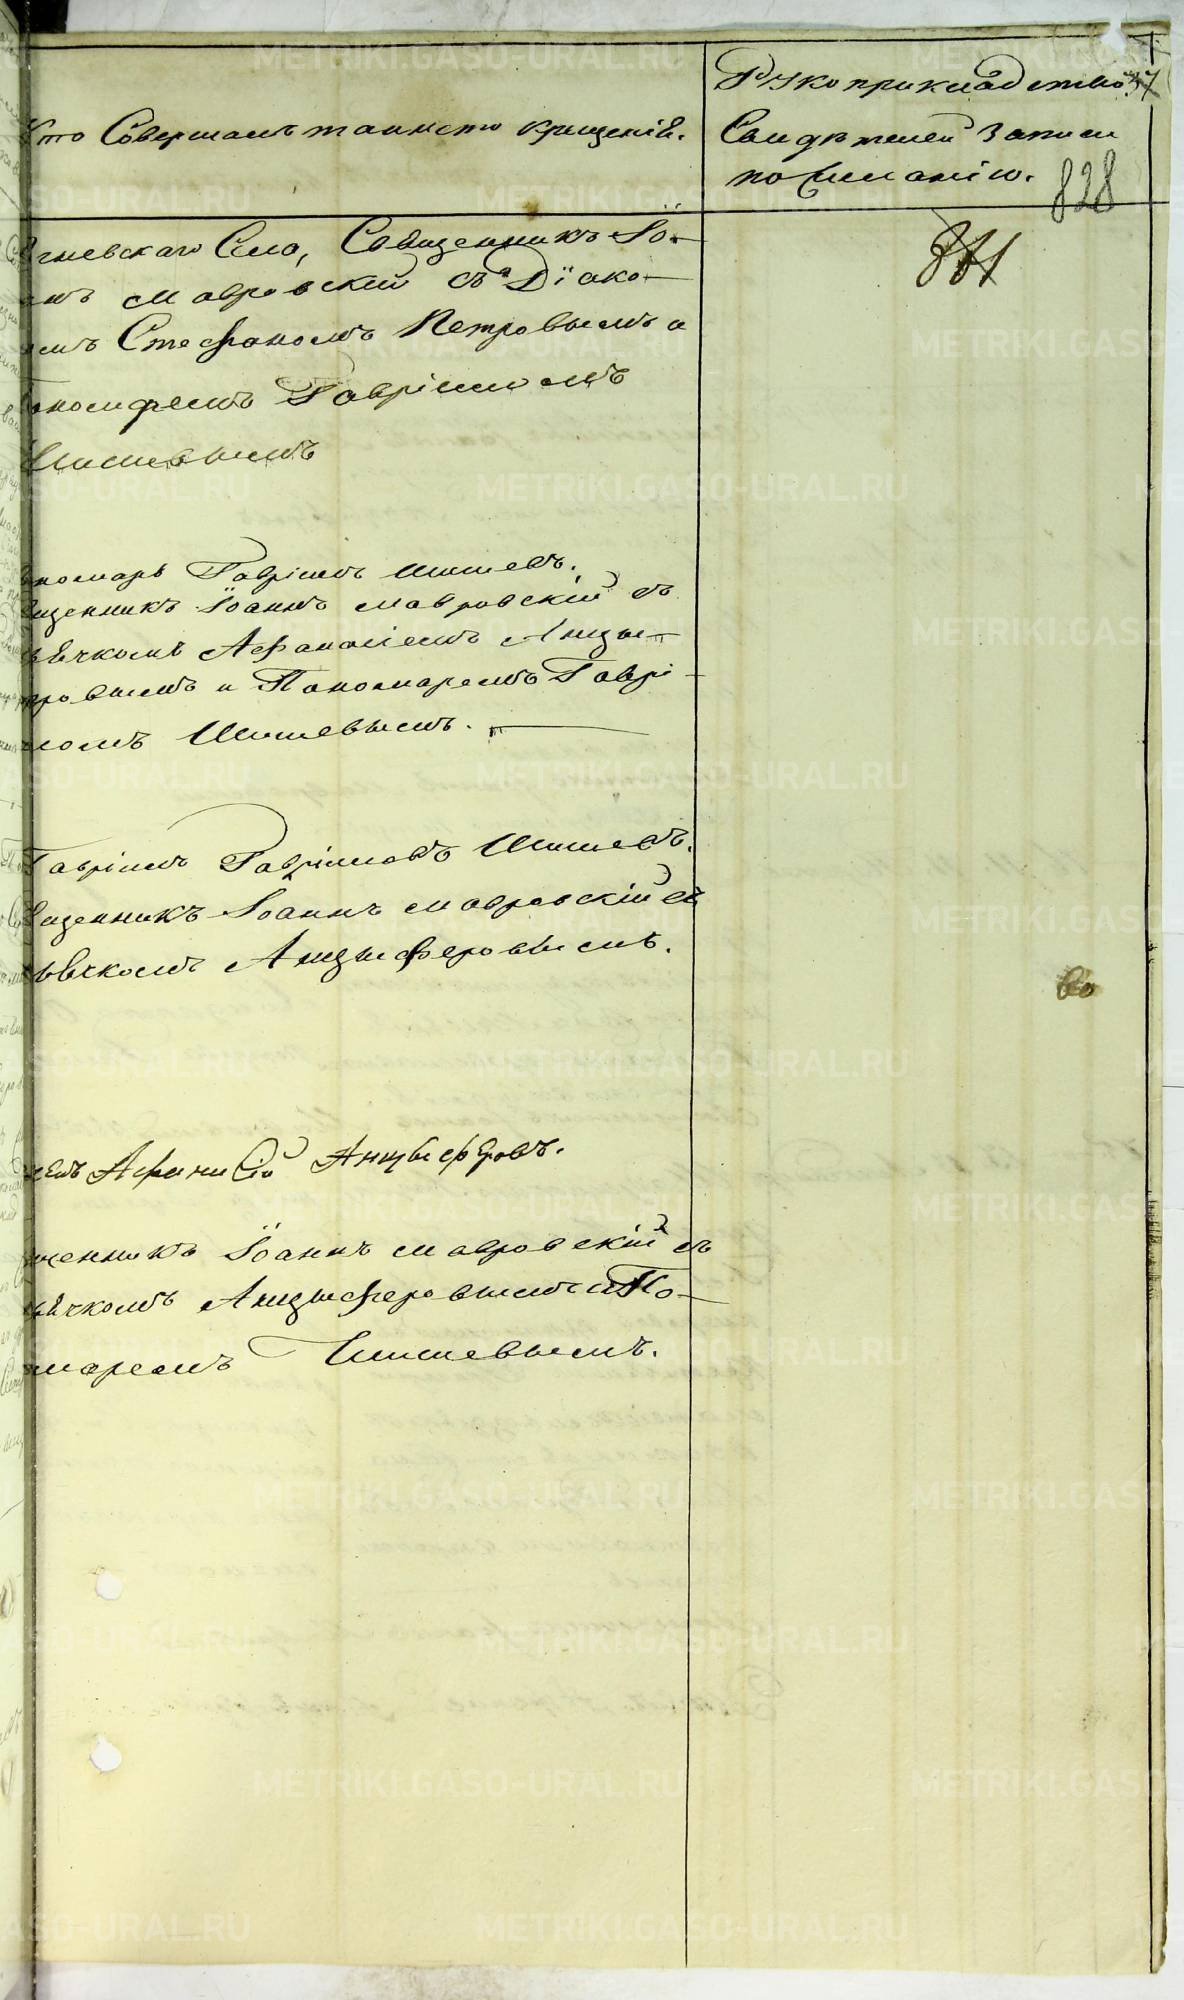 Кто Совершалъ таинство крещенія.
Рукоприкладство
Свидѣтелей Записи
по желанію.
828
гневскаго Села, Священникъ Іо-
нъ Мавровскій съ Діако-
мъ Стефаномъ Петровымъ и
номаремъ Гавріиломъ
Шишевымъ
номарь Гавріилъ Шишевъ.
щенникъ Іоаннъ Мавровскій съ
ячкомъ Афанасіемъ Анцы-
ровымъ и Пономаремъ Гаврі-
ломъ Шишевымъ.
Гавріилъ Гавріиловъ Шишевъ.
щенникъ Іоаннъ Мавровскій съ
ьячкомъ Анцыферовымъ.
Афанасій Анцыферовъ.
щенникъ Іоаннъ Мавровскій съ
ьячкомъ Анцыферовымъ и По-
маремъ Шишевымъ.
METRIKI.GASO-URAL.RU